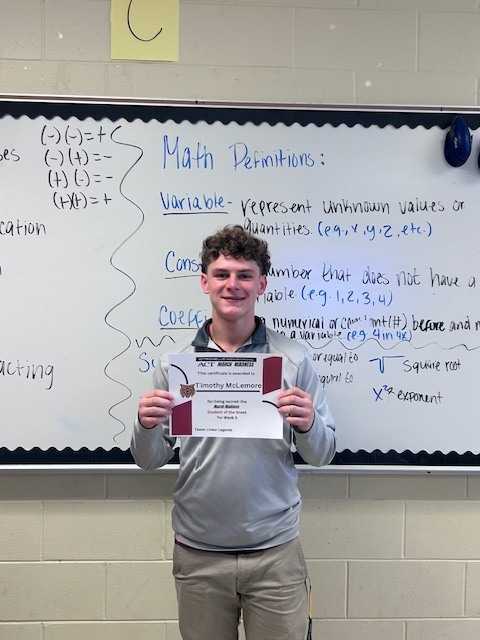 C
(-)(-)=+
(-)(+)=-
(+)(-)=-
(+)(+)=+
cation
acting
Math Definitions:
Variable- represent unknown values or
quantities. (e.g., x, y, z, etc.)
Cons
number that does not have a
riable. (e.g. 1, 2, 3, 4)
Coeffi
numerical or (#) before and
a variable (e.g. 4 in 4x)
or equal to
√ square root
exponent
ACT MARCH MADNESS
This certificate is awarded to
Timothy McLemore
for being named the
March Madness
Student of the Week
for Week 3
Team: Linear Legends